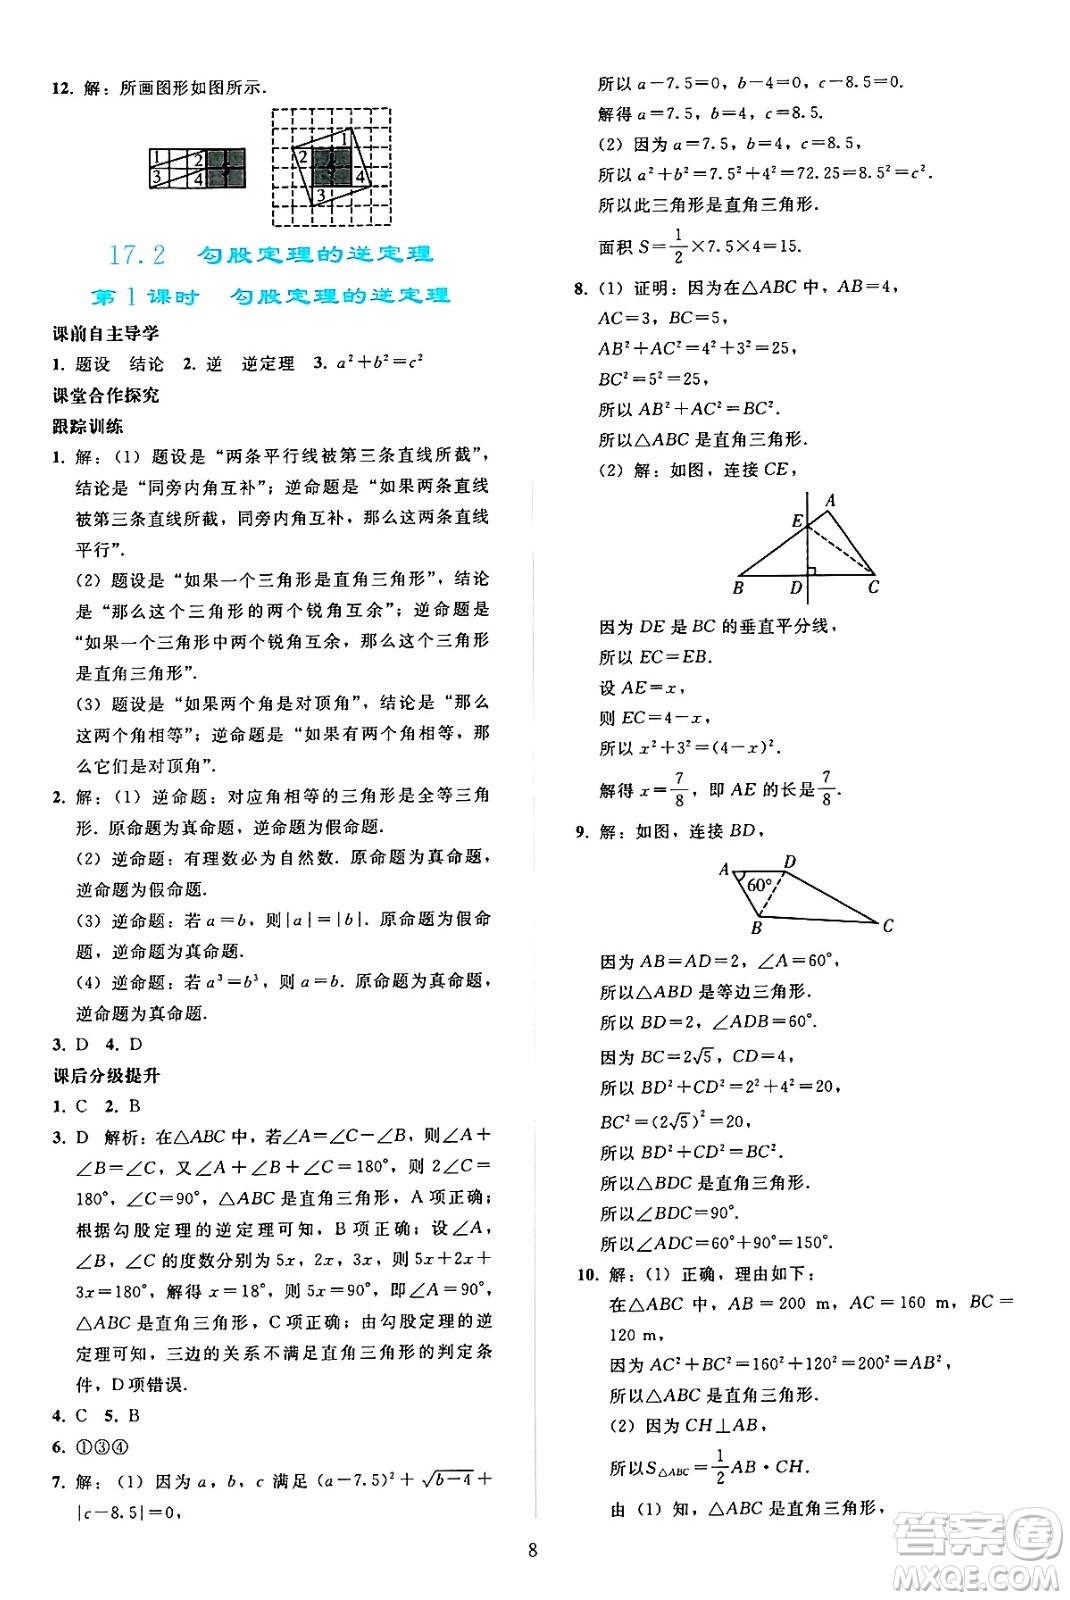 12. 解：所画图形如图所示.
1 2
3 4
1
2
4
3
17.2 勾股定理的逆定理
第 1 课时 勾股定理的逆定理
课前自主导学
1. 题设 结论 2. 逆 逆定理 3. a²+b²=c²
课堂合作探究
跟踪训练
1. 解：(1) 题设是“两条平行线被第三条直线所截”，
结论是“同旁内角互补”；逆命题是“如果两条直线
被第三条直线所截，同旁内角互补，那么这两条直线
平行”.
(2) 题设是“如果一个三角形是直角三角形”，结论
是“那么这个三角形的两个锐角互余”；逆命题是
“如果一个三角形中两个锐角互余，那么这个三角形
是直角三角形”.
(3) 题设是“如果两个角是对顶角”，结论是“那么
这两个角相等”；逆命题是“如果有两个角相等，那
么它们是对顶角”.
2. 解：(1) 逆命题：对应角相等的三角形是全等三角
形. 原命题为真命题，逆命题为假命题.
(2) 逆命题：有理数必为自然数. 原命题为真命题，
逆命题为假命题.
(3) 逆命题：若 a=b，则|a|=|b|. 原命题为假命
题，逆命题为真命题.
(4) 逆命题：若 a³=b³，则 a=b. 原命题为真命题，
逆命题为真命题.
3. D 4. D
课后分级提升
1. C 2. B
3. D 解析：在△ABC 中，若∠A=∠C-∠B，则∠A+
∠B=∠C，又∠A+∠B+∠C=180°，则 2∠C=
180°，∠C=90°，△ABC 是直角三角形，A 项正确；
根据勾股定理的逆定理可知，B 项正确；设∠A，
∠B，∠C 的度数分别为 5x，2x，3x，则 5x+2x+
3x=180°，解得 x=18°，则 5x=90°，即∠A=90°，
△ABC 是直角三角形，C 项正确；由勾股定理的逆
定理可知，三边的关系不满足直角三角形的判定条
件，D 项错误.
4. C 5. B
6. ①③④
7. 解：(1) 因为 a，b，c 满足 (a-7.5)²+√(b-4)+
|c-8.5|=0，
所以 a-7.5=0，b-4=0，c-8.5=0.
解得 a=7.5，b=4，c=8.5.
(2) 因为 a=7.5，b=4，c=8.5，
所以 a²+b²=7.5²+4²=72.25=8.5²=c².
所以此三角形是直角三角形.
面积 S=1/2×7.5×4=15.
8. (1) 证明：因为在△ABC 中，AB=4，
AC=3，BC=5，
AB²+AC²=4²+3²=25，
BC²=5²=25，
所以 AB²+AC²=BC².
所以△ABC 是直角三角形.
(2) 解：如图，连接 CE，
A
E
B D C
因为 DE 是 BC 的垂直平分线，
所以 EC=EB.
设 AE=x，
则 EC=4-x，
所以 x²+3²=(4-x)².
解得 x=7/8，即 AE 的长是7/8.
9. 解：如图，连接 BD，
A D
60°
B C
因为 AB=AD=2，∠A=60°，
所以△ABD 是等边三角形.
所以 BD=2，∠ADB=60°.
因为 BC=2√5，CD=4，
所以 BD²+CD²=2²+4²=20，
BC²=(2√5)²=20，
所以 BD²+CD²=BC².
所以△BDC 是直角三角形.
所以∠BDC=90°.
所以∠ADC=60°+90°=150°.
10. 解：(1) 正确，理由如下：
在△ABC 中，AB=200 m，AC=160 m，BC=
120 m，
因为 AC²+BC²=160²+120²=200²=AB²，
所以△ABC 是直角三角形.
(2) 因为 CH⊥AB，
所以S△ABC=1/2 AB·CH.
由 (1) 知，△ABC 是直角三角形，
8
答案圈
MXQE.COM